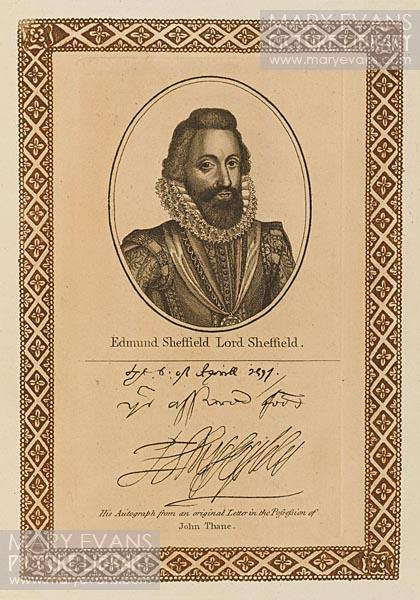 MARY EVANS
PICTURE LIBRARY
www.maryevans.com
Edmund Sheffield Lord Sheffield.
6. of Aprill
yor assured
His Autograph from an original Letter in the Possession of
John Thane.
MARY EVANS
PICTURE LIBRARY
www.maryevans.com